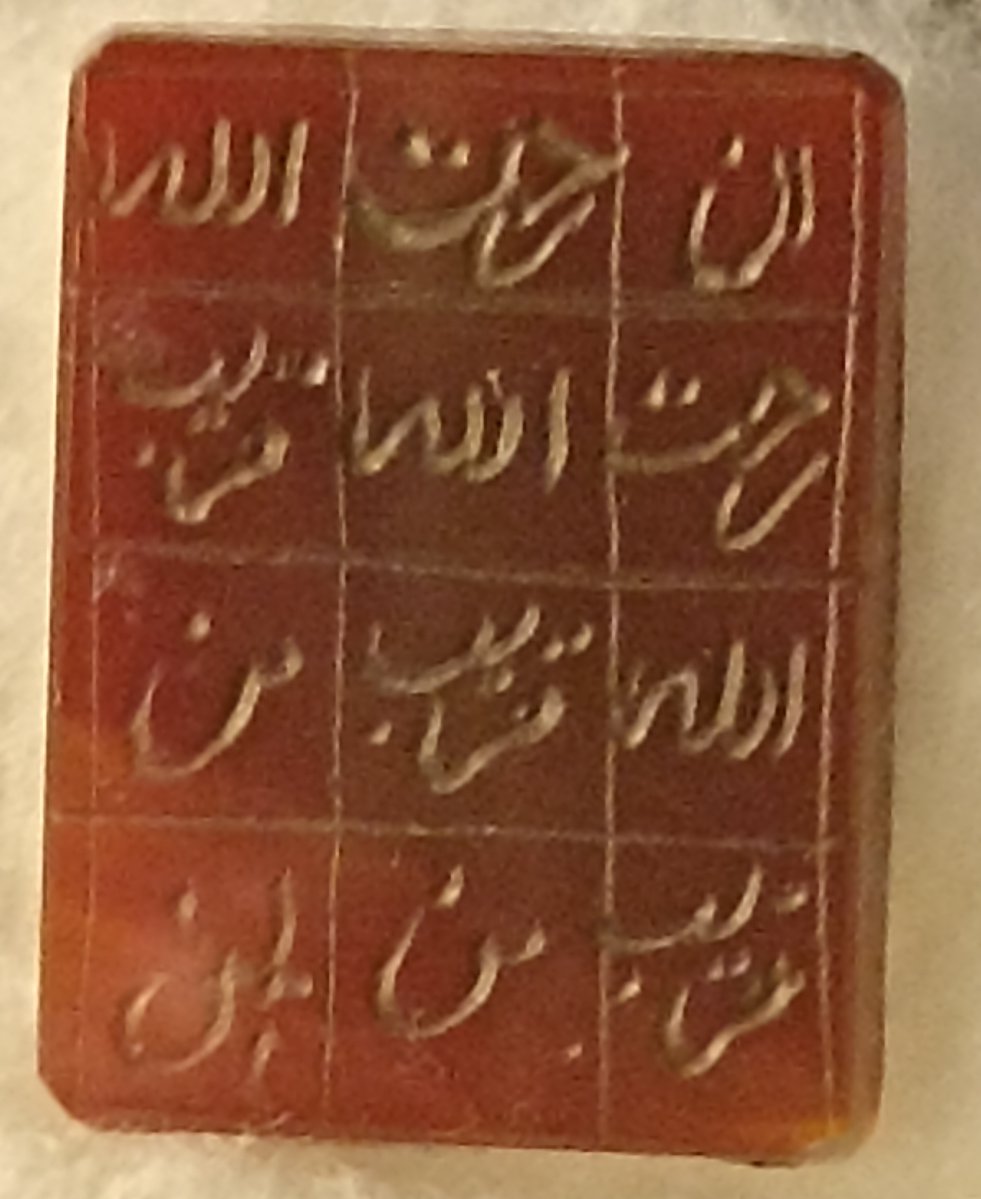 ان رحمت الله
رحمت الله قریب
الله قریب من
قریب من